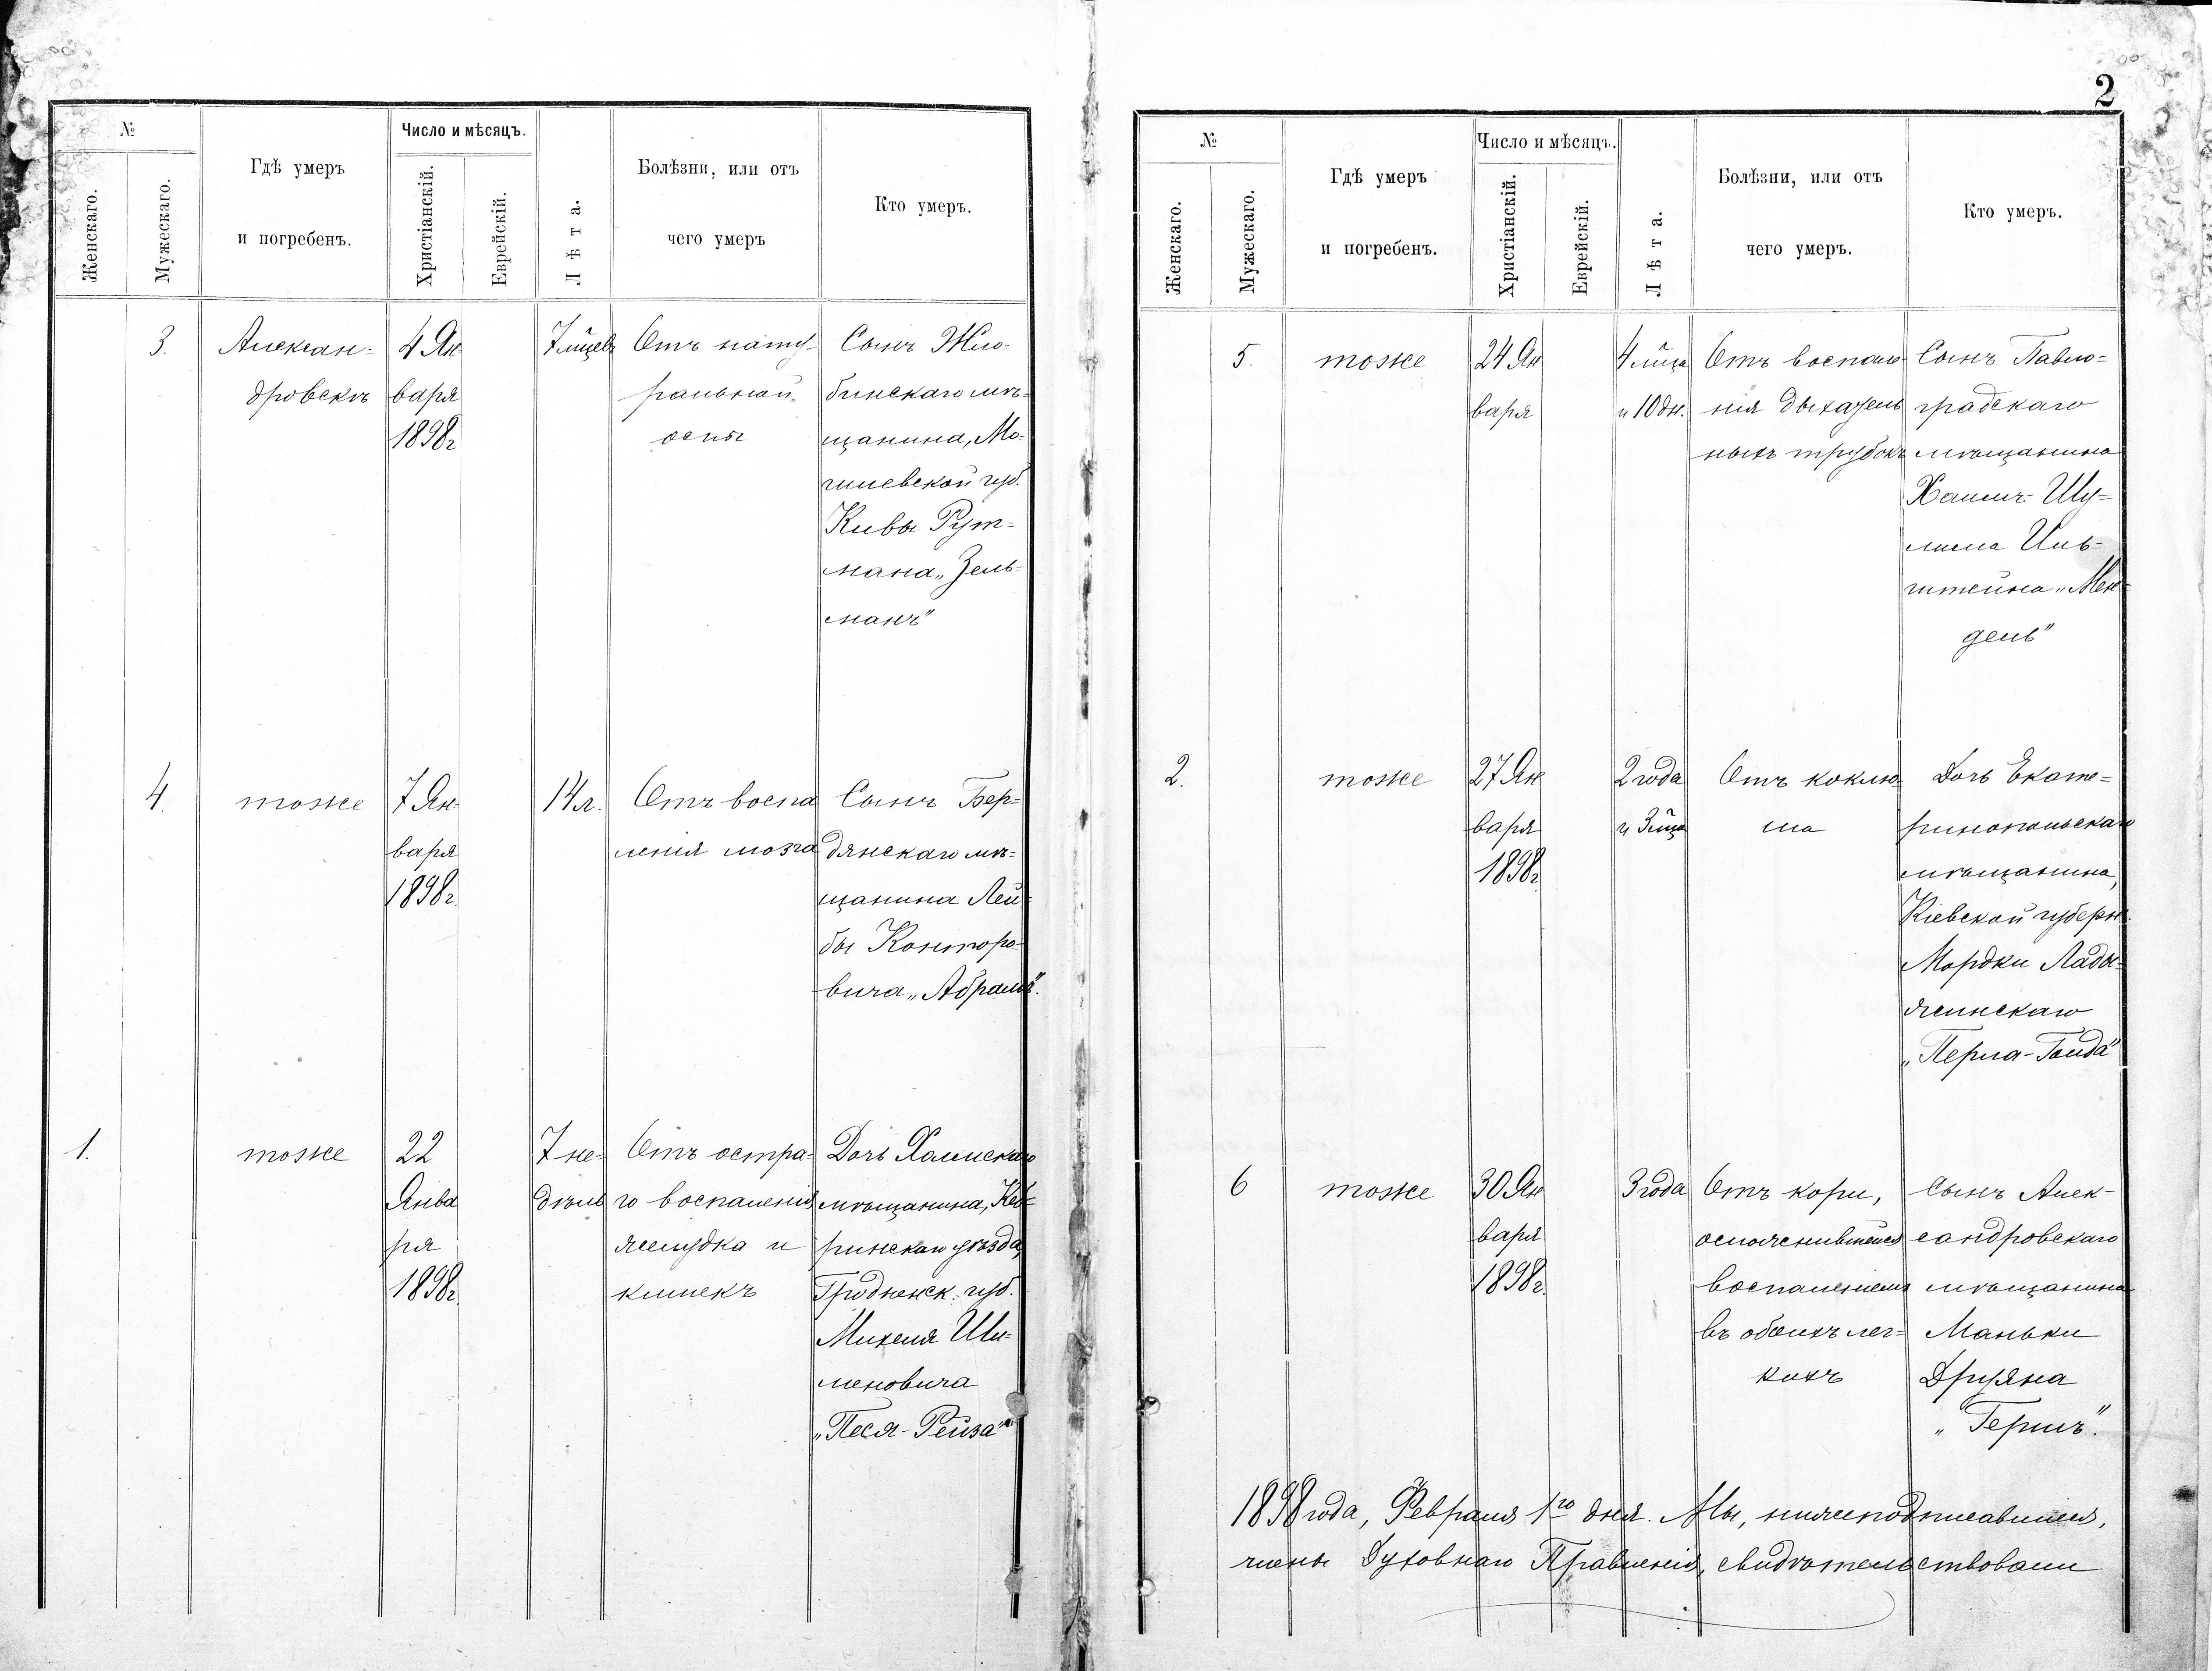 №
Женскаго.
Мужескаго.
Гдѣ умеръ
и погребенъ.
Число и мѣсяцъ.
Христіанскій.
Еврейскій.
Лѣта.
Болѣзни, или отъ
чего умеръ
Кто умеръ.
3.
Алексан-
дровскъ
4 Ян
варя
1898г
7 мцевъ
Отъ нату-
ральной
оспы
Сынъ Жло-
бинскаго мѣ-
щанина, Мо-
гилевской губ.
Кивы Рут-
мана „Зель-
манъ"
4.
тоже
7 Ян-
варя
1898г.
14 л.
Отъ воспа
ленія мозга
Сынъ Бер-
дянскаго мѣ-
щанина Лей-
бы Конторо-
вича „Абрамъ".
1.
тоже
22
Янва
ря
1898г.
7 не-
дѣль
Отъ остра-
го воспаленія
желудка и
кишекъ
Дочь Халискаго
мѣщанина, Коб-
ринскаго уѣзда,
Гродненск. губ.
Михеля Ши-
меновича
„Песя-Рейза"
2
№
Женскаго.
Мужескаго.
Гдѣ умеръ
и погребенъ.
Число и мѣсяцъ.
Христіанскій.
Еврейскій.
Лѣта.
Болѣзни, или отъ
чего умеръ.
Кто умеръ.
5.
тоже
24 Ян
варя
4 мца
и 10 дн.
Отъ воспале-
нія дыхатель
ныхъ трубокъ
Сынъ Павло-
градскаго
мѣщанина
Хаимъ-Шу-
лима Иль-
штейна „Мен-
дель"
2.
тоже
27 Ян
варя
1898г.
2 года
и 3 мца
Отъ коклю-
ша
Дочь Екате-
ринопольскаго
мѣщанина,
Кіевской губерн.
Мордки Лады-
жинскаго
„Перла-Голда"
6
тоже
30 Ян
варя
1898г.
3 года
Отъ кори,
осложнившейся
воспаленіемъ
въ обоихъ лег-
кихъ
Сынъ Алек-
сандровскаго
мѣщанина
Маньки
Друяна
„Гершъ".
1898 года, Февраля 1го дня. Мы, нижеподписавшіеся,
члены Духовнаго Правленія, свидѣтельствовали